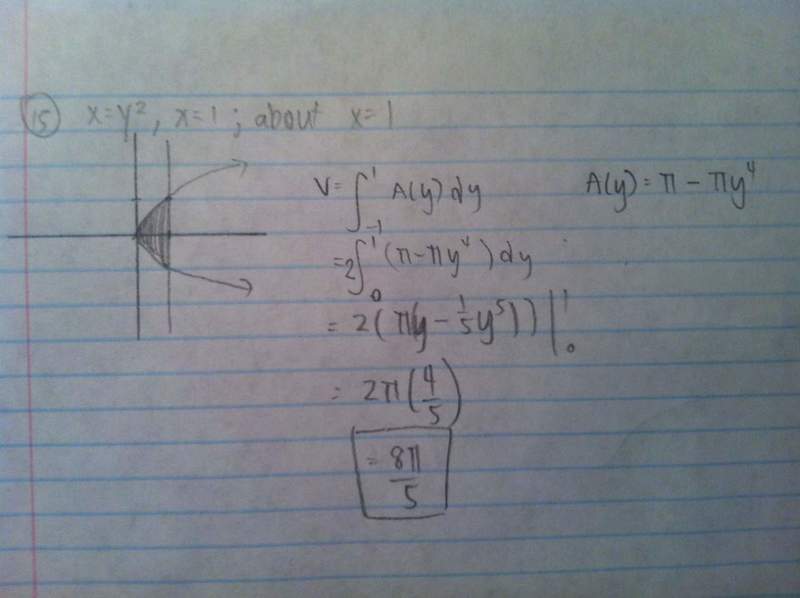 15 x=y², x=1; about x=1
V= ∫₋₁¹ A(y) dy A(y) = π − πy⁴
=2∫₀¹ (π−πy⁴) dy
= 2(π(y − 1/5 y⁵)) |₀¹
= 2π(4/5)
= 8π/5